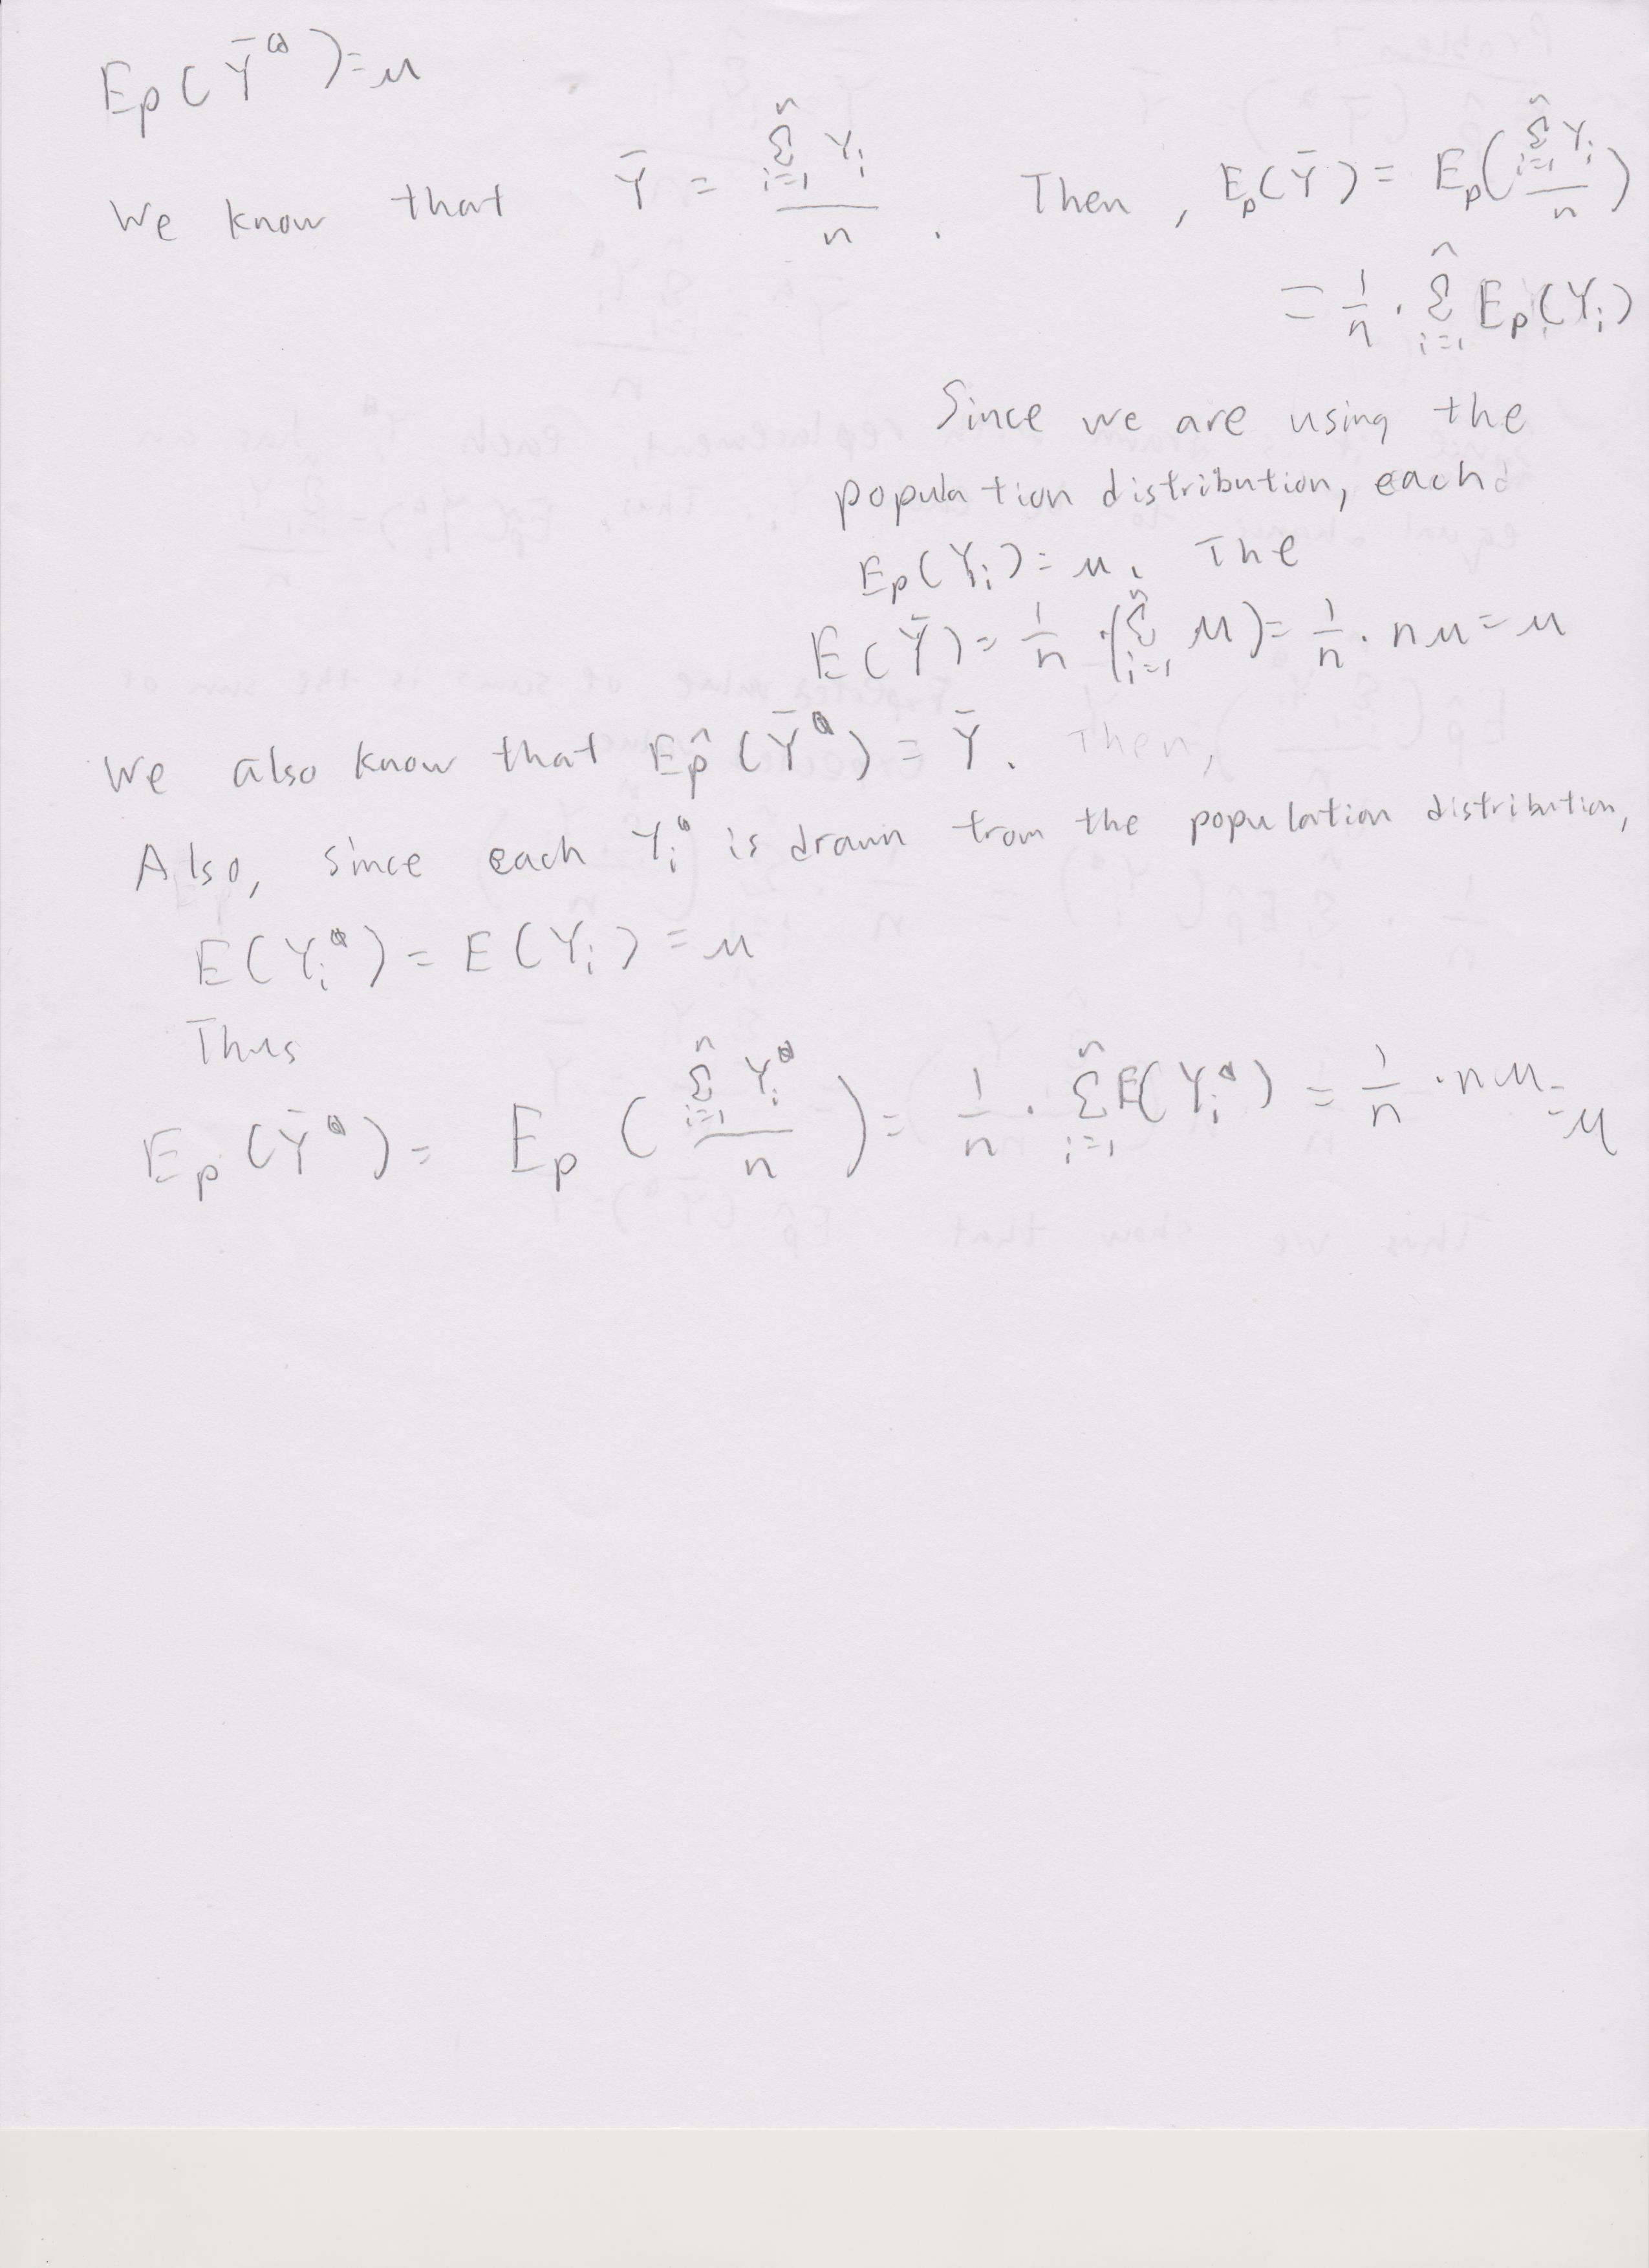 E_p(Ȳ^a)=μ
We know that Ȳ = Σ_{i=1}^n Y_i / n . Then, E_p(Ȳ) = E_p(Σ_{i=1}^n Y_i / n)
= 1/n · Σ_{i=1}^n E_p(Y_i)
Since we are using the
population distribution, each
E_p(Y_i) = μ. The
E(Ȳ) = 1/n · (Σ_{i=1}^n μ) = 1/n · nμ = μ
We also know that E_p̂(Ȳ^a) = Ȳ. Then,
Also, since each Y_i^a is drawn from the population distribution,
E(Y_i^a) = E(Y_i) = μ
Thus
E_p(Ȳ^a) = E_p(Σ_{i=1}^n Y_i^a / n) = 1/n · Σ_{i=1}^n E(Y_i^a) = 1/n · nμ = μ